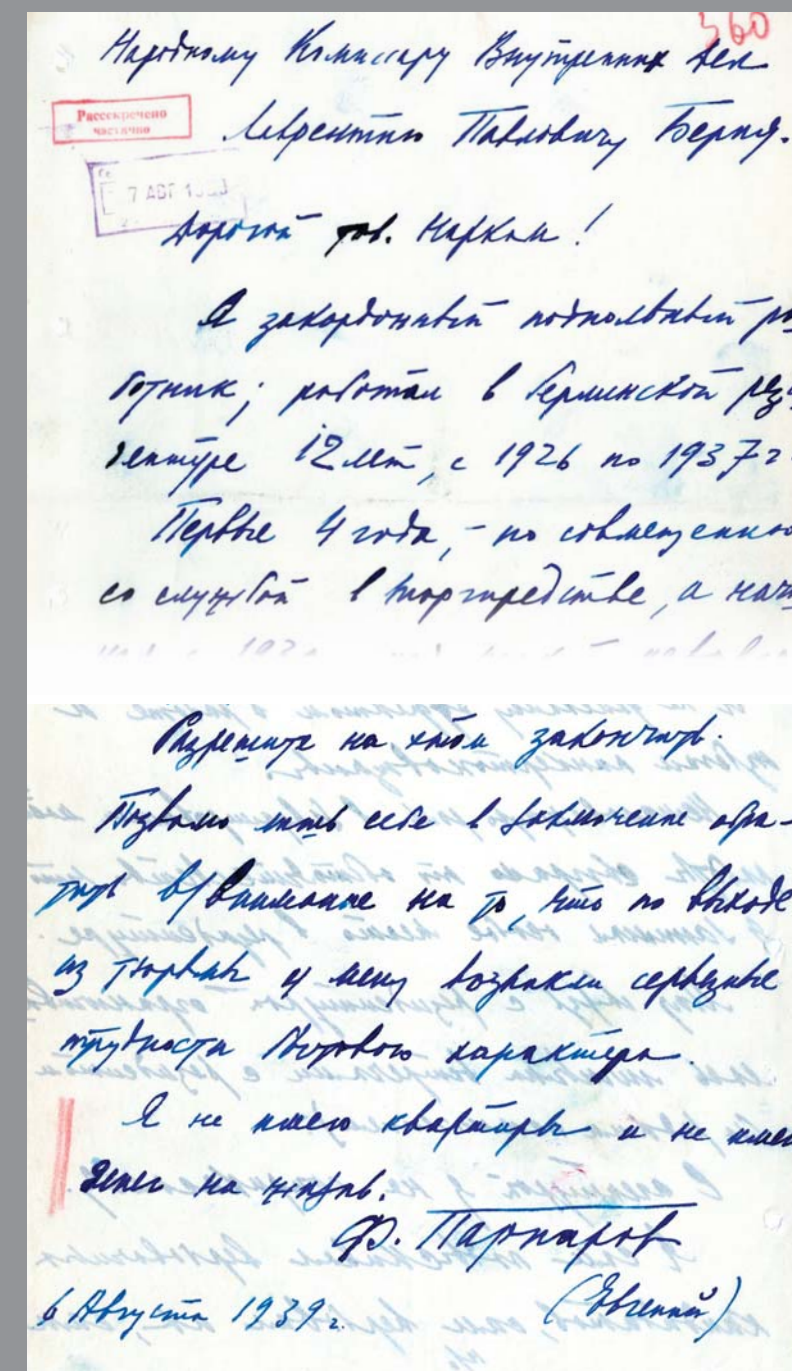 360
Народному Комиссару Внутренних дел
Рассекречено
частично
Лаврентию Павловичу Берия.
7 АВГ 19
Дорогой тов. Нарком!
Я закордонный подпольный ра
ботник; работал в берлинской рези
дентуре 12 лет, с 1926 по 1937 г
Первые 4 года, – по совмещению
со службой в торгпредстве, а начи
Разрешите на этом закончить.
Позволю лишь себе в заключение обра-
тить В/внимание на то, что по выходе
из тюрьмы у меня возникли серьезные
трудности бытового характера.
Я не имею квартиры и не имею
денег на жизнь.
Ф. Парпаров
6 Августа 1939 г.
(Евгений)